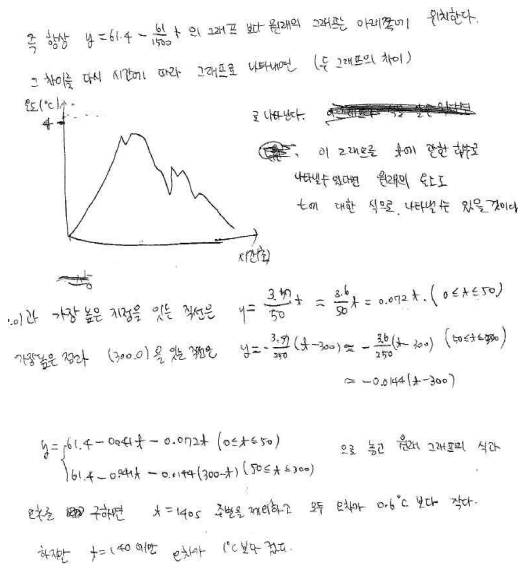 즉 항상 y=61.4-61/1500 t 의 그래프 보다 원래의 그래프는 아래쪽에 위치한다.
그 차이를 다시 시간에 따라 그래프로 나타내면 (두 그래프의 차이)
온도(°C)
4
시간(초)
로 나타난다.
이 그래프를 t에 관한 함수로
나타낼 수 있다면 원래의 온도도
t에 대한 식으로 나타낼 수 있을 것이다
.0)과 가장 높은 지점을 잇는 직선은 y= /50 t ≈ 3.6/50 t = 0.072t. (0≤t≤50)
가장높은 점과 (300.0)을 잇는 직선은 y=- /250 (t-300) ≈ -3.6/250 (t-300)
≈ -0.0144(t-300)
y= 61.4-0.041t-0.072t (0≤t≤50)
61.4-0.041t-0.0144(300-t) (50≤t≤300)
으로 놓고 원래 그래프의 식과
오차를 구하면 t=140s 주변을 제외하고 모두 오차가 0.6°C 보다 작다.
하지만 t=140 에선 오차가 1°C보다 컸다.